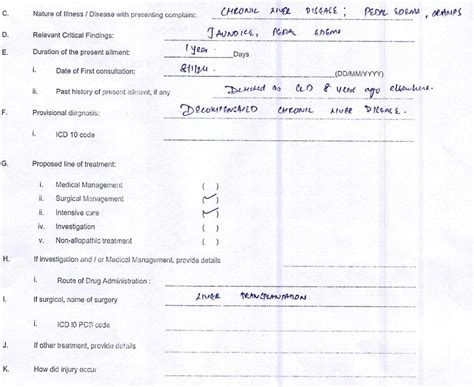 C. Nature of Illness / Disease with presenting complaint: CHRONIC LIVER DISEASE; PEDAL EDEMA, CRAMPS
D. Relevant Critical Findings: JAUNDICE, PEDAL EDEMA
E. Duration of the present ailment: 1 year Days
i. Date of First consultation: (DD/MM/YYYY)
ii. Past history of present ailment, if any Detected as CLD 8 year ago elsewhere.
F. Provisional diagnosis: DECOMPENSATED CHRONIC LIVER DISEASE.
i. ICD 10 code
G. Proposed line of treatment:
i. Medical Management ( )
ii. Surgical Management (✓)
ii. Intensive care (✓)
iv. Investigation ( )
v. Non-allopathic treatment ( )
H. If investigation and / or Medical Management, provide details
i. Route of Drug Administration :
I. If surgical, name of surgery LIVER TRANSPLANTATION.
i. ICD I0 PCS code
J. If other treatment, provide details
K. How did injury occur